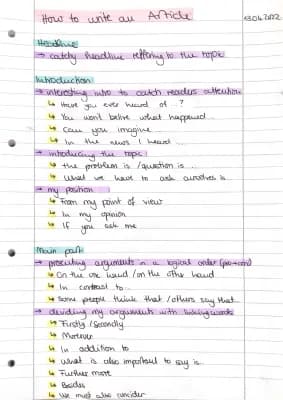 How to write an Article
13.04.2022
Headline
→ catchy headline reffering to the topic
Introduction
→ interesting intro to catch readers attention
↳ Have you ever heard of ...?
↳ You won't belive what happened...
↳ Can you imagine
↳ In the news I heard...
→ introducing the topic:
↳ the problem is / question is ...
↳ What we have to ask ourselves is
→ my position
↳ From my point of view
↳ In my opinion
↳ If you ask me
Main part
→ presenting arguments in a logical order (pro+con)
↳ On the one hand / on the other hand
↳ In contrast to...
↳ Some people think that / others say that...
→ deviding my argument with linking words
↳ Firstly / Secondly
↳ Moreover
↳ In addition to
↳ What is also important to say is..
↳ Further more
↳ Besides
↳ We must also consider